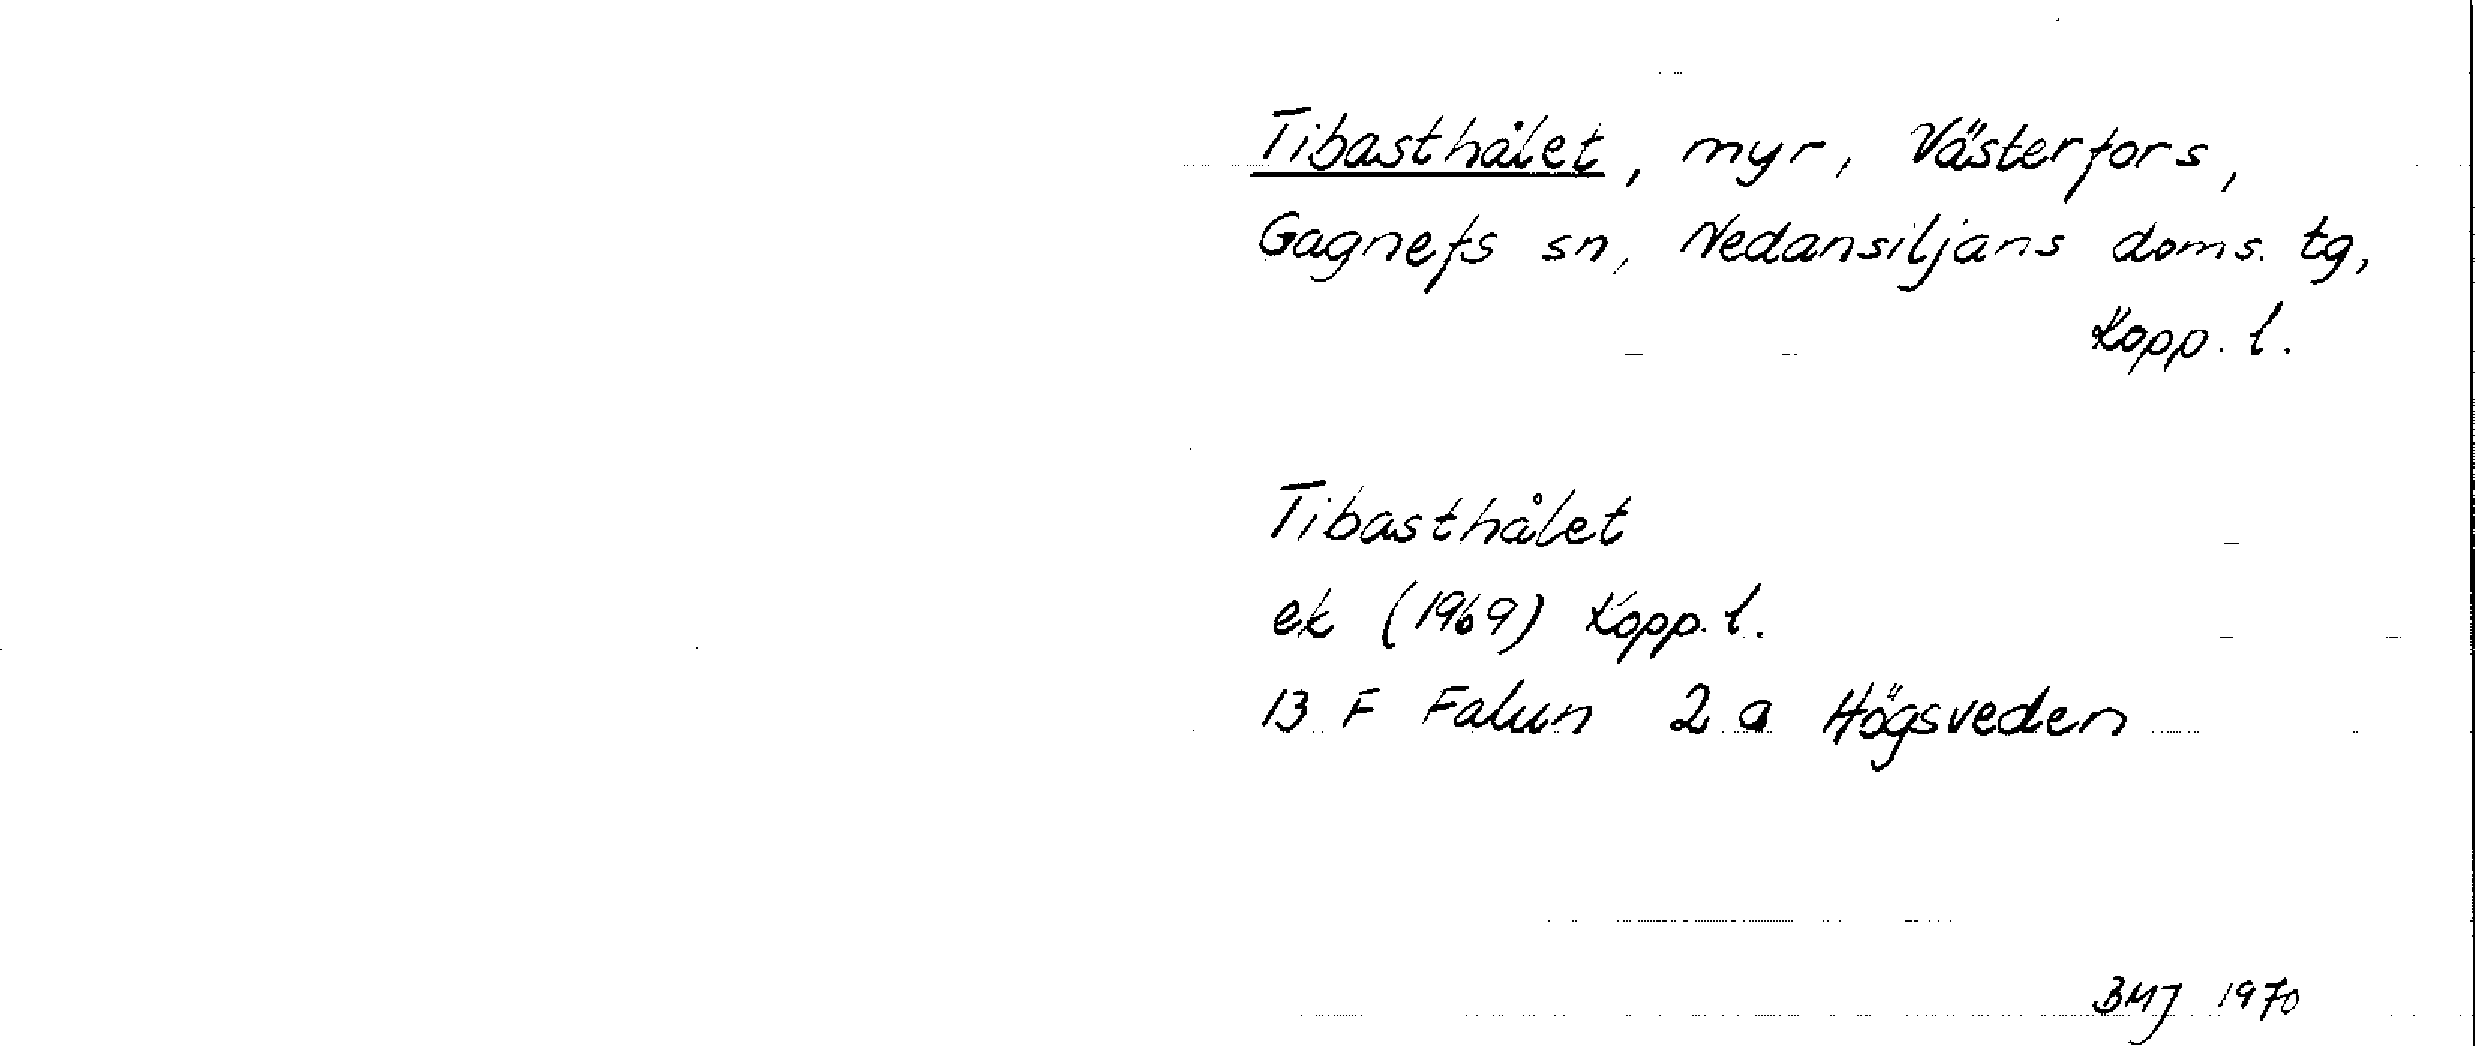 Tibasthålet, myr, Västerfors,
Gagnefs sn, Nedansiljans doms. tg,
Kopp. l.
Tibasthålet
ek (1969) Kopp. l.
13 F Falun 2 a Högsveden
BMJ 1970